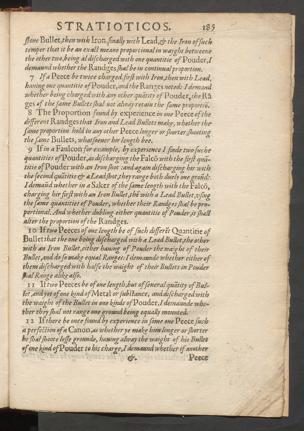 STRATIOTICOS. 185
stone Bullet, then with Iron, finally with Lead, & the Iron of such
temper that it be an exact meane proportional in waight betweene
the other two, being al discharged with one quantitie of Pouder, I
demaund whether the Randges shal be in continual proportion.
7 If a Peece be twice charged, first with Iron, then with Lead,
having one quantitie of Pouder, and the Ranges noted: I demaund
whether being charged with any other quātity of Pouder, the Rā
ges of the same Bullets shal not alway retain the same proportiō.
8 The Proportion found by experience in one Peece of the
different Randges that Iron and Lead Bullets make, whether the
same proportion hold in any other Peece longer or shorter shooting
the same Bullets, whatsoever hir length bee.
9 If in a Faulcon for example, by experience I finde two suche
quantities of Pouder, as discharging the Falcō with the first quā-
titie of Pouder with an Iron shot: and again discharging hir with
the second quātitie & a Lead shot, they range both duely one groūd:
I demaūd whether in a Saker of the same length with the Falcō,
charging hir first with an Iron Bullet, thē with a Lead Bullet, vsing
the same quantities of Pouder, whether their Randges shal be pro-
portional. And whether dubling either quantitie of Pouder, it shall
alter the proportion of the Randges.
10 If two Peeces of one length be of such differēt Quantitie of
Bullet that the one being discharged with a Lead Bullet, the other
with an Iron Bullet, either having of Pouder the waight of their
Bullet, and do so make equal Ranges: I demaunde whether either of
them discharged with halfe the waight of their Bullets in Pouder
shal Range alike also.
11 If two Peeces be of one length, but of several quātity of Bul-
let, and yet of one kind of Metal or substance, and discharged with
the waight of the Bullet in one kinde of Pouder, I demaunde whe-
ther they shal not range one ground being equally mounted.
12 If there be once found by experience in some one Peece such
a perfectiō of a Canon, as whether ye make him longer or shorter
he shal shoote lesse grounde, having alway the waight of his Bullet
of one kind of Pouder to his charge, I demaund whether if another
&. Peece